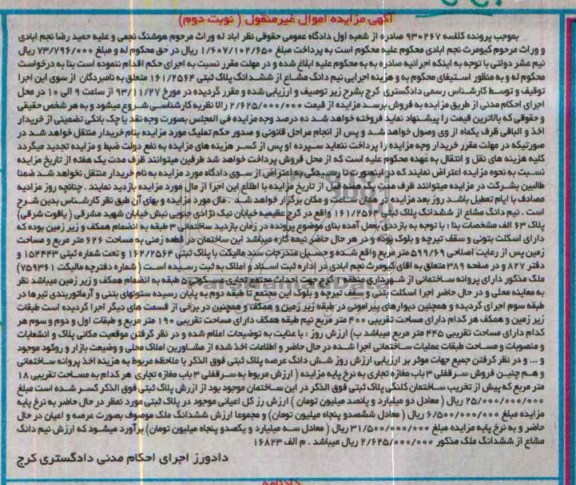 آگهی مزایده اموال غیرمنقول ( نوبت دوم)
بموجب پرونده کلاسه ۹۳۰۲۶۷ صادره از شعبه اول دادگاه عمومی حقوقی نظر آباد له وراث مرحوم هوشنگ نجمی و علیه حمید رضا نجم ابادی
و وراث مرحوم کیومرث نجم ابادی محکوم علیه محکوم است به پرداخت مبلغ ۱/۶۰۷/۱۰۲/۶۵۰ ریال در حق محکوم له و مبلغ ۷۳/۷۹۶/۰۰۰ ریال
نیم عشر دولتی با توجه به اینکه اجرائیه صادره به محکوم علیه ابلاغ شده و در مهلت مقرر نسبت به اجرای حکم اقدام ننموده است بنا به درخواست
محکوم له و به منظور استیفای محکوم به و هزینه اجرایی نیم دانگ مشاع از ششدانگ پلاک ثبتی ۱۶۱/۲۵۶۴ متعلق به نامبردگان از سوی این اجرا
توقیف و توسط کارشناس رسمی دادگستری کرج بشرح زیر توصیف و ارزیابی شده و مقرر گردیده در مورخ ۹۳/۱۱/۲۷ از ساعت ۹ الی ۱۰ در محل
اجرای احکام مدنی از طریق مزایده به فروش برسد مزایده از قیمت ۲/۶۲۵/۰۰۰/۰۰۰ ریال نظریه کارشناسی شروع میشود و به هر شخص حقیقی
و حقوقی که بالاترین قیمت را پیشنهاد نماید فروخته خواهد شد ده درصد وجه مزایده فی المجلس بصورت وجه نقد یا چک بانکی تضمینی از خریدار
اخذ و الباقی ظرف یکماه از وی وصول خواهد شد و پس از انجام مراحل قانونی و صدور حکم تملیک مورد مزایده بنام خریدار منتقل خواهد شد در
صورتیکه در مهلت مقرر خریدار وجه مزایده را پرداخت ننماید سپرده او پس از کسر هزینه های مزایده به نفع دولت ضبط و مزایده تجدید میگردد
کلیه هزینه های نقل و انتقال به عهده محکوم علیه است که از محل فروش پرداخت خواهد شد طرفین میتوانند ظرف مدت یک هفته از تاریخ مزایده
نسبت به نحوه مزایده اعتراض نمایند که در اینصورت تا رسیدگی به اعتراض از سوی دادگاه مورد مزایده به نام خریدار منتقل نخواهد شد ضمنا
طالبین بشرکت در مزایده میتوانند ظرف مدت پنج روز قبل از تاریخ مزایده با اطلاع این اجرا از مال مورد مزایده بازدید نمایند . چنانچه روز مزایده
مصادف با ایام تعطیل باشد روز بعد مزایده در همان ساعت و مکان برگزار خواهد شد . مال مورد مزایده و بهای آن طبق نظر کارشناس بدین شرح
است . نیم دانگ مشاع از ششدانگ پلاک ثبتی ۱۶۱/۲۵۶۴ واقع در کرج عظیمیه خیابان نیک نژادی جنوبی نبش خیابان شهید مشرقی ( یاقوت شرقی)
پلاک ۶۳ الف مشخصات بنا : با توجه به بازدید بعمل آمده بنای موضوع پرونده در زمان بازدید ساختمانی ۳ طبقه به انضمام همکف و زیر زمین بوده که
دارای اسکلت بتونی و سقف تیرچه و بلوک بوده و در هر حال حاضر نیمه کاره میباشد این ساختمان در قطعه زمینی به مساحت ۶۲۶ متر مربع و مساحت
زمین پس از رعایت اصلاحی ۵۹۹/۶۹ متر مربع واقع شده و حسب مندرجات سند مالکیت با پلاک ثبتی ۱۶۲/۲۵۶۴ و تحت شماره ثبتی ۱۵۴۴۴۳ و
دفتر ۸۲۷ و در صفحه ۳۸۹ متعلق به اقای کیومرث نجم ابادی در اداره ثبت اسناد و املاک به ثبت رسیده است ( شماره دفترچه مالکیت ۷۵۹۳۶۱)
ملک مذکور دارای پروانه ساختمانی از شهرداری منطقه جهت احداث مجتمع تجاری مسکونی طبقه به انضمام همکف و زیر زمین میباشد نظر
به معاینه محلی و در حال حاضر اجرا اسکلت بتنی و سقف تیرچه و بلوک این مجتمع تا طبقه دوم به پایان رسیده ستونهای بتنی و آرماتوربندی تیرها در
طبقه سوم اجرا گردیده و همچنین دیوارهای پیرامونی در طبقه زیر زمین و همکف و همچنین در برقی از قسمت های دیگر اجرا گردیده است طبقات
زیر زمین و همکف هر کدام دارای مساحت تقریبی ۴۰۰ متر مربع نیم طبقه همکف دارای مساحت تقریبی ۱۹۰ متر مربع و طبقات اول و دوم و سوم هر
کدام دارای مساحت تقریبی ۴۴۵ متر مربع میباشد ب) ارزش روز : با عنایت به توضیحات اعلام شده و در نظر گرفتن موقعیت مکانی پلاک و انشعابات
و منصوبات و مساحت طبقات عملیات ساختمانی اجرا شده در حال حاضر و اطلاعات اخذ شده از مشاورین املاک محلی و وضعیت بازار و رکود موجود
و ... و در نظر گرفتن جمیع جهات موثر بر ارزیابی ارزش روز شش دانگ عرصه پلاک ثبتی فوق الذکر با ملاحظه مربوط به هزینه اخذ پروانه ساختمانی
و هم چنین فروش سرقفلی ۳ باب مغازه تجاری به نرخ پایه مزایده ( ارزش مربوط به سرقفلی ۳ باب مغازه تجاری هر کدام به مساحت تقریبی ۱۸
متر مربع که پیش از تخریب ساختمان کلنگی پلاک ثبتی فوق الذکر در این ساختمان موجود بود از ارزش پلاک ثبتی فوق الذکر کسر شده است مبلغ
۲۵/۰۰۰/۰۰۰/۰۰۰ ریال ( معادل دو میلیارد و پانصد میلیون تومان ) ارزش رز کل اعیانی موجود در پلاک ثبتی مورد نظر در حال حاضر به نرخ پایه
مزایده مبلغ ۶/۵۰۰/۰۰۰/۰۰۰ ریال ( معادل ششصدو پنجاه میلیون تومان) و مجموعا ارزش ششدانگ ملک موصوف بصورت عرصه و اعیان در حال
حاضر و به نرخ پایه مزایده مبلغ ۳۱/۵۰۰/۰۰۰/۰۰۰ ریال ( معادل سه میلیارد و یکصدو پنجاه میلیون تومان) برآورد میشود که ارزش نیم دانگ
مشاع از ششدانگ ملک مذکور ۲/۶۲۵/۰۰۰/۰۰۰ ریال میباشد . م الف ۱۶۸۲۳
دادورز اجرای احکام مدنی دادگستری کرج
دادنامه